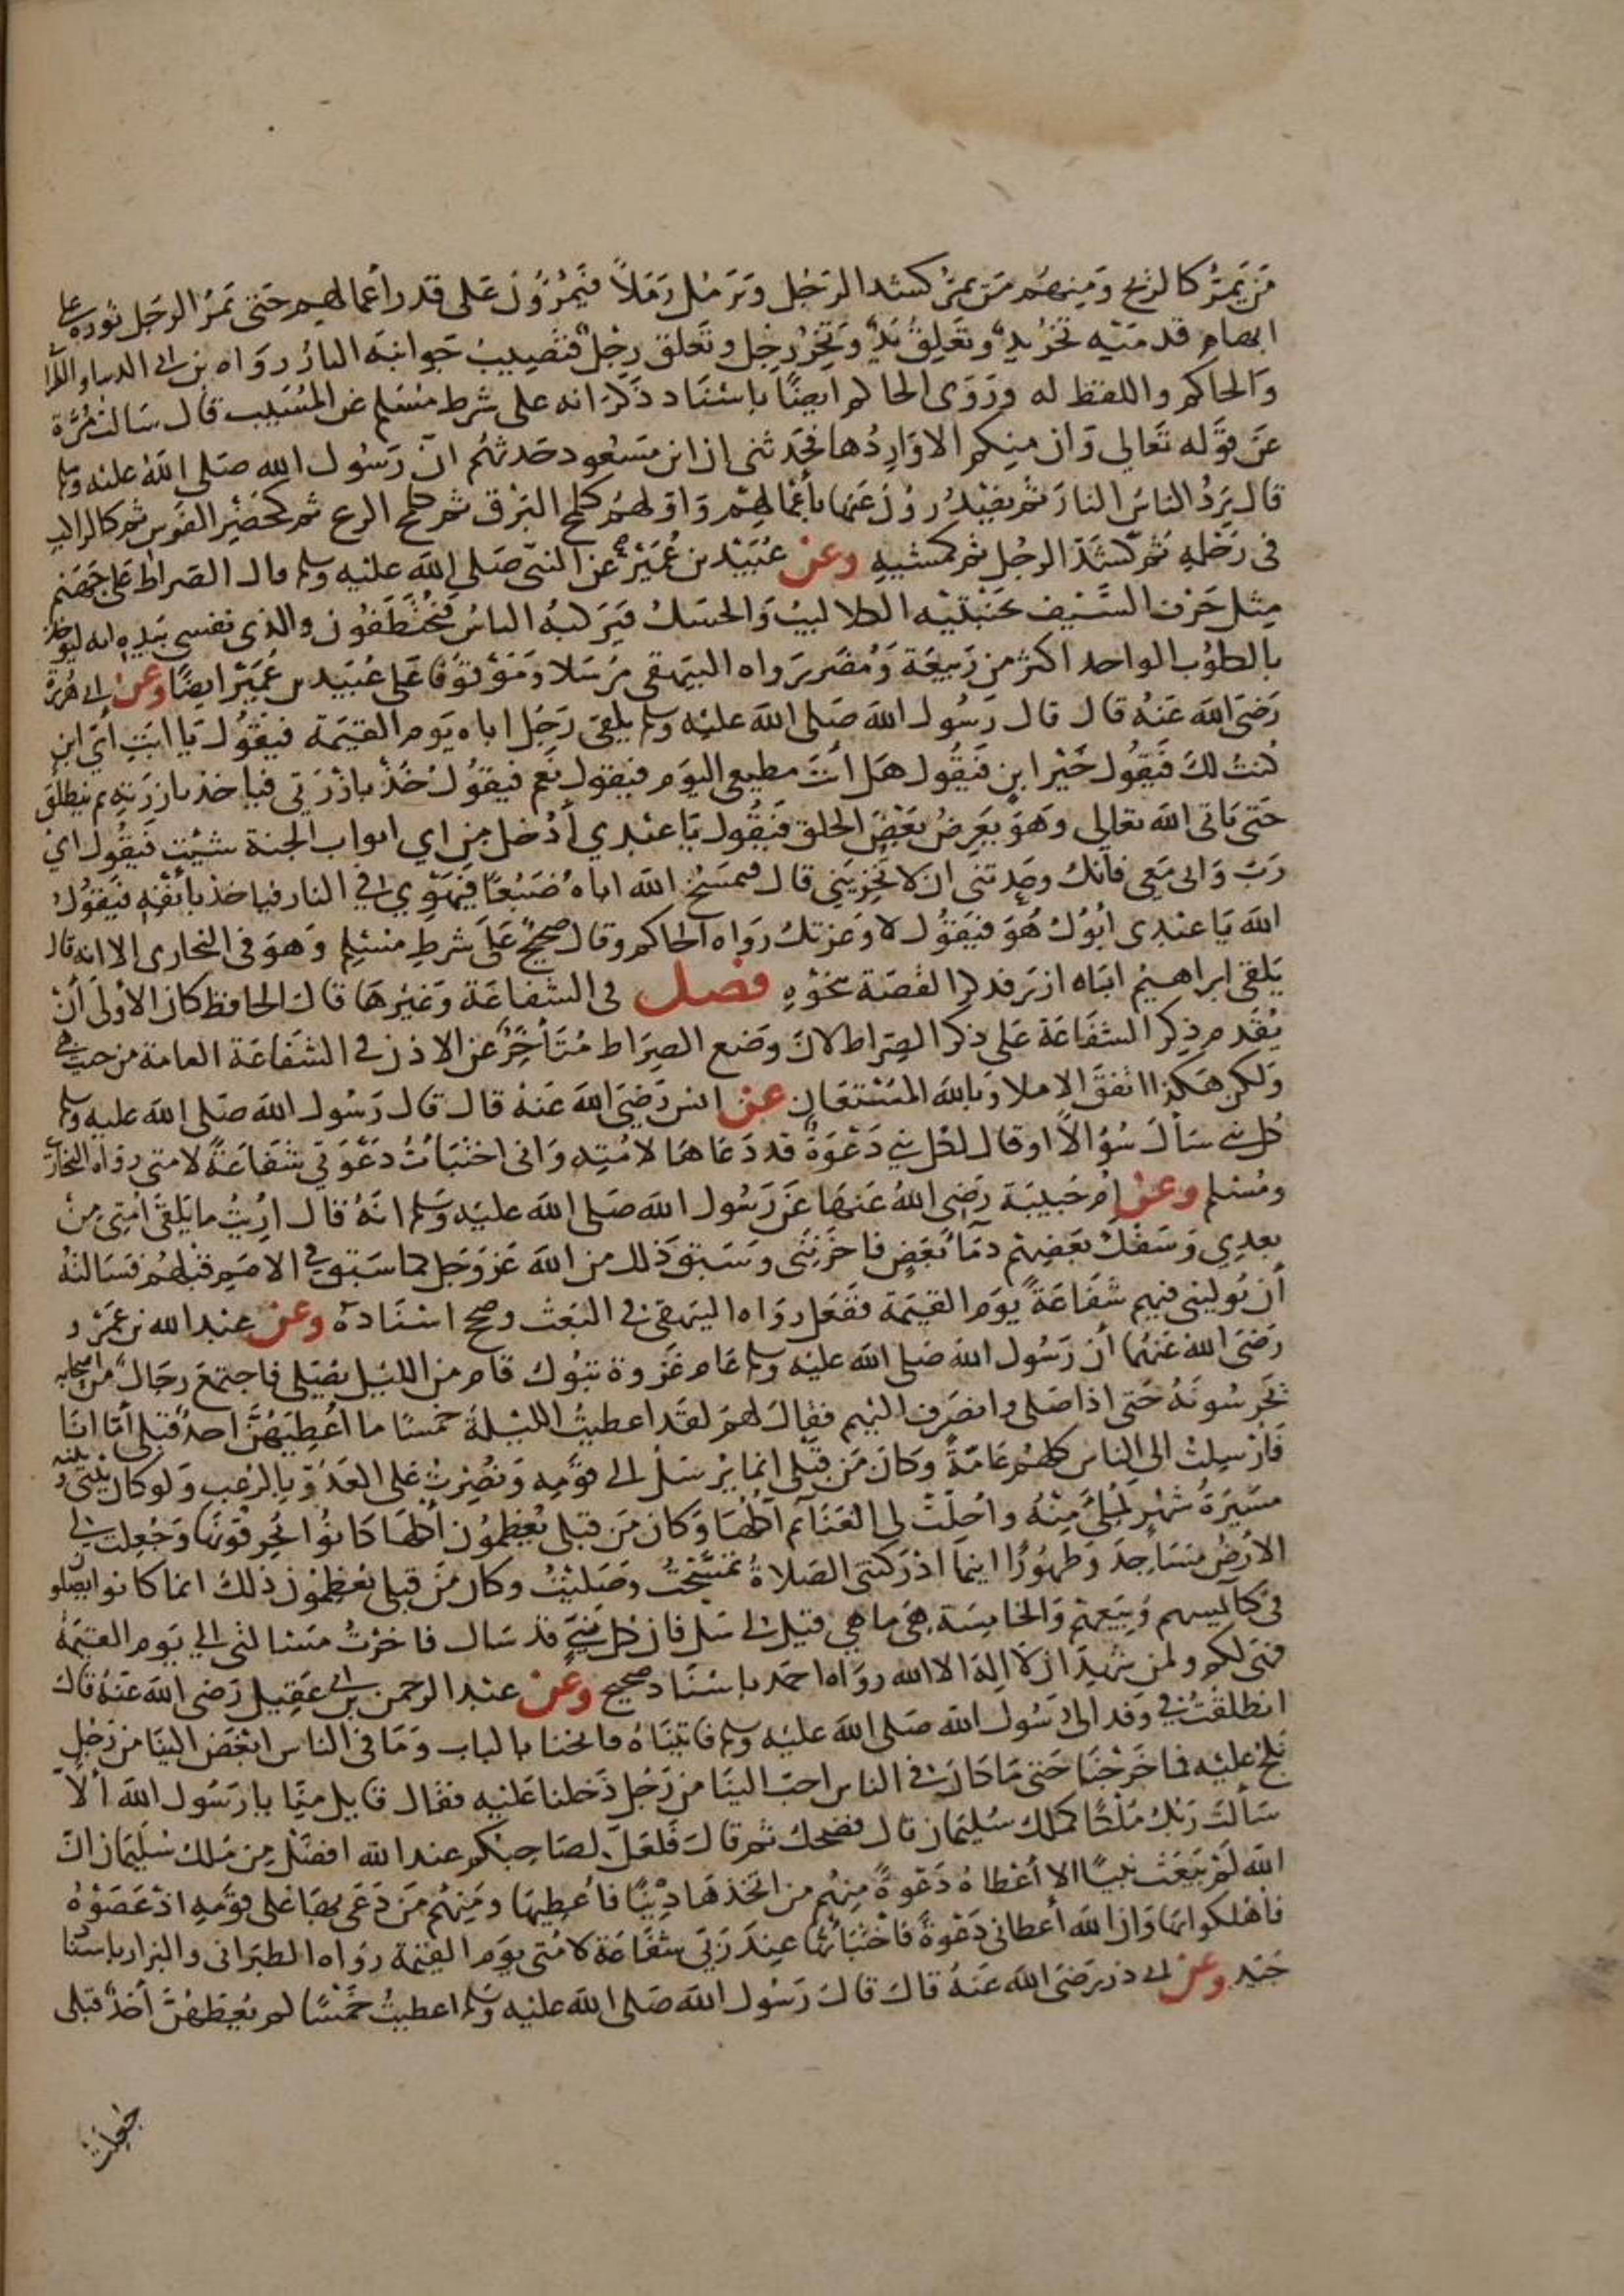 من يمر كالريح ومنهم من يمر كشد الرجل وترمل رملاً فيمرون على قدر أعمالهم حتى يمر الرجل نوره على
ابهام قدميه تخر يد وتعلق يد وتخر رجل وتعلق رجل فتصيب جوانبه النار رواه بن ابي الدنيا والطبرا
والحاكم واللفظ له وروى الحاكم ايضًا باسناد ذكر انه على شرط مسلم عن المسيب قال سالت مرة
عن قوله تعالى وان منكم الا واردها فحدثني ان ابن مسعود حدثهم ان رسول الله صلى الله عليه وسلم
قال يرد الناس النار ثم يصدرون عنها بأعمالهم واولهم كلمح البرق ثم كلمح الريح ثم كحضر الفرس ثم كالراكب
في رحله ثم كشد الرجل ثم كمشيه وعن عبيد بن عمير عن النبي صلى الله عليه وسلم قال الصراط على جهنم
مثل حرف السيف بجنبتيه الكلاليب والحسك فيركبه الناس فيختطفون والذي نفسي بيده انه ليوخذ
بالكلوب الواحد اكثر من ربيعة ومضر رواه البيهقي مرسلا وموقوفا على عبيد بن عمير ايضًا وعن ابي هريرة
رضي الله عنه قال قال رسول الله صلى الله عليه وسلم يلقى رجل اباه يوم القيمة فيقول يا ابت أي ابن
كنت لك فيقول خير ابن فيقول هل أنت مطيعي اليوم فيقول نعم فيقول خذ بازرتي فياخذ بازرته ثم ينطلق
حتى ياتي الله تعالى وهو يعرض بعض الخلق فيقول يا عبدي أدخل من اي ابواب الجنة شئت فيقول اي
رب وابي معي فانك وعدتني ان لا تخزيني قال فيمسخ الله اباه ضبعًا فيهوي في النار فياخذ بأنفه فيقول
الله يا عبدي أبوك هو فيقول لا وعزتك رواه الحاكم وقال صحيح على شرط مسلم وهو في البخاري الا انه قال
يلقى ابراهيم اباه ازر فذكر القصة بنحوه فصل في الشفاعة وغيرها قال الحافظ كان الأولى أن
يقدم ذكر الشفاعة على ذكر الصراط لان وضع الصراط متأخر عن الاذن في الشفاعة العامة من حيث هي
ولكن هكذا اتفق الاملا وبالله المستعان عن انس رضي الله عنه قال قال رسول الله صلى الله عليه وسلم
كل نبي سأل سؤالاً او قال لكل نبي دعوة قد دعاها لامته واني اختبأت دعوتي شفاعة لامتي رواه البخاري
ومسلم وعن ام حبيبة رضي الله عنها عن رسول الله صلى الله عليه وسلم انه قال اريت ما يلقى امتي من
بعدي وسفك بعضهم دمآ بعض فاحزنني وسبق ذلك من الله عز وجل كما سبق في الامم قبلهم فسالته
أن يوليني فيهم شفاعة يوم القيمة ففعل رواه البيهقي في البعث وصحح اسناده وعن عبد الله بن عمرو
رضي الله عنهما أن رسول الله صلى الله عليه وسلم عام غزوة تبوك قام من الليل يصلي فاجتمع رجال من اصحابه
يحرسونه حتى اذا صلى وانصرف اليهم فقال لهم لقد اعطيت الليلة خمسًا ما أعطيهن احد قبلي أما انا
فارسلت الى الناس كلهم عامة وكان من قبلي انما يرسل الى قومه ونصرت على العدو بالرعب ولو كان بيني وبينه
مسيرة شهر لملئ منه واحلت لي الغنائم آكلها وكان من قبلي يعظمون أكلها كانوا يحرقونها وجعلت لي
الارض مساجد وطهورًا اينما ادركتني الصلاة تمسحت وصليت وكان من قبلي يعظمون ذلك انما كانوا يصلو
في كنايسهم وبيعهم والخامسة هي ما هي قيل لي سل فان كل نبي قد سال فاخرت مسالتي الى يوم القيمة
فهي لكم ولمن شهد ان لا اله الا الله رواه احمد باسناد صحيح وعن عبد الرحمن بن ابي عقيل رضي الله عنه قال
انطلقت في وفد الى رسول الله صلى الله عليه وسلم فاتيناه فانخنا بالباب وما في الناس ابغض الينا من رجل
نلج عليه فما خرجنا حتى ما كان في الناس احب الينا من رجل دخلنا عليه فقال قايل منا يا رسول الله ألا
سألت ربك ملكًا كملك سليمان قال فضحك ثم قال فلعل لصاحبكم عند الله افضل من ملك سليمان ان
الله لم يبعث نبيًا الا أعطاه دعوة منهم من اتخذها دنيا فأعطيها ومنهم من دعى بها على قومه اذ عصوه
فاهلكوا بها وان الله أعطاني دعوة فاختبأتها عند ربي شفاعة لامتي يوم القيمة رواه الطبراني والبزار باسنا
جيد وعن ابي ذر رضي الله عنه قال قال رسول الله صلى الله عليه وسلم اعطيت خمسًا لم يعطهن أحد قبلي
جعلت